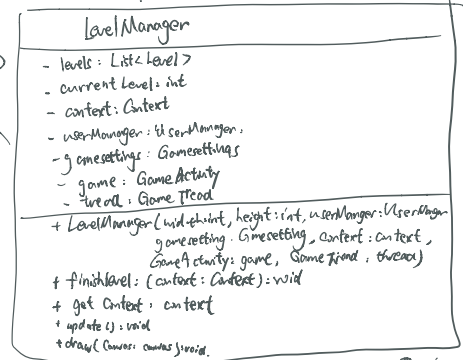 LevelManager
- levels : List<Level>
- current Level: int
- context: Context
- userManager: UserManager.
- gamesettings : Gamesettings
- game : GameActivity
- tread : Game Tread
+ LevelManager(width:int, height:int, userManger:UserManger
gamesetting. Gmesetting, context: context,
GameActivity: game, GameTread, thread)
+ finishlevel: (context: Context): void
+ get Context : context
+ update(): void
+ draw( Canvas: canvas ):void.